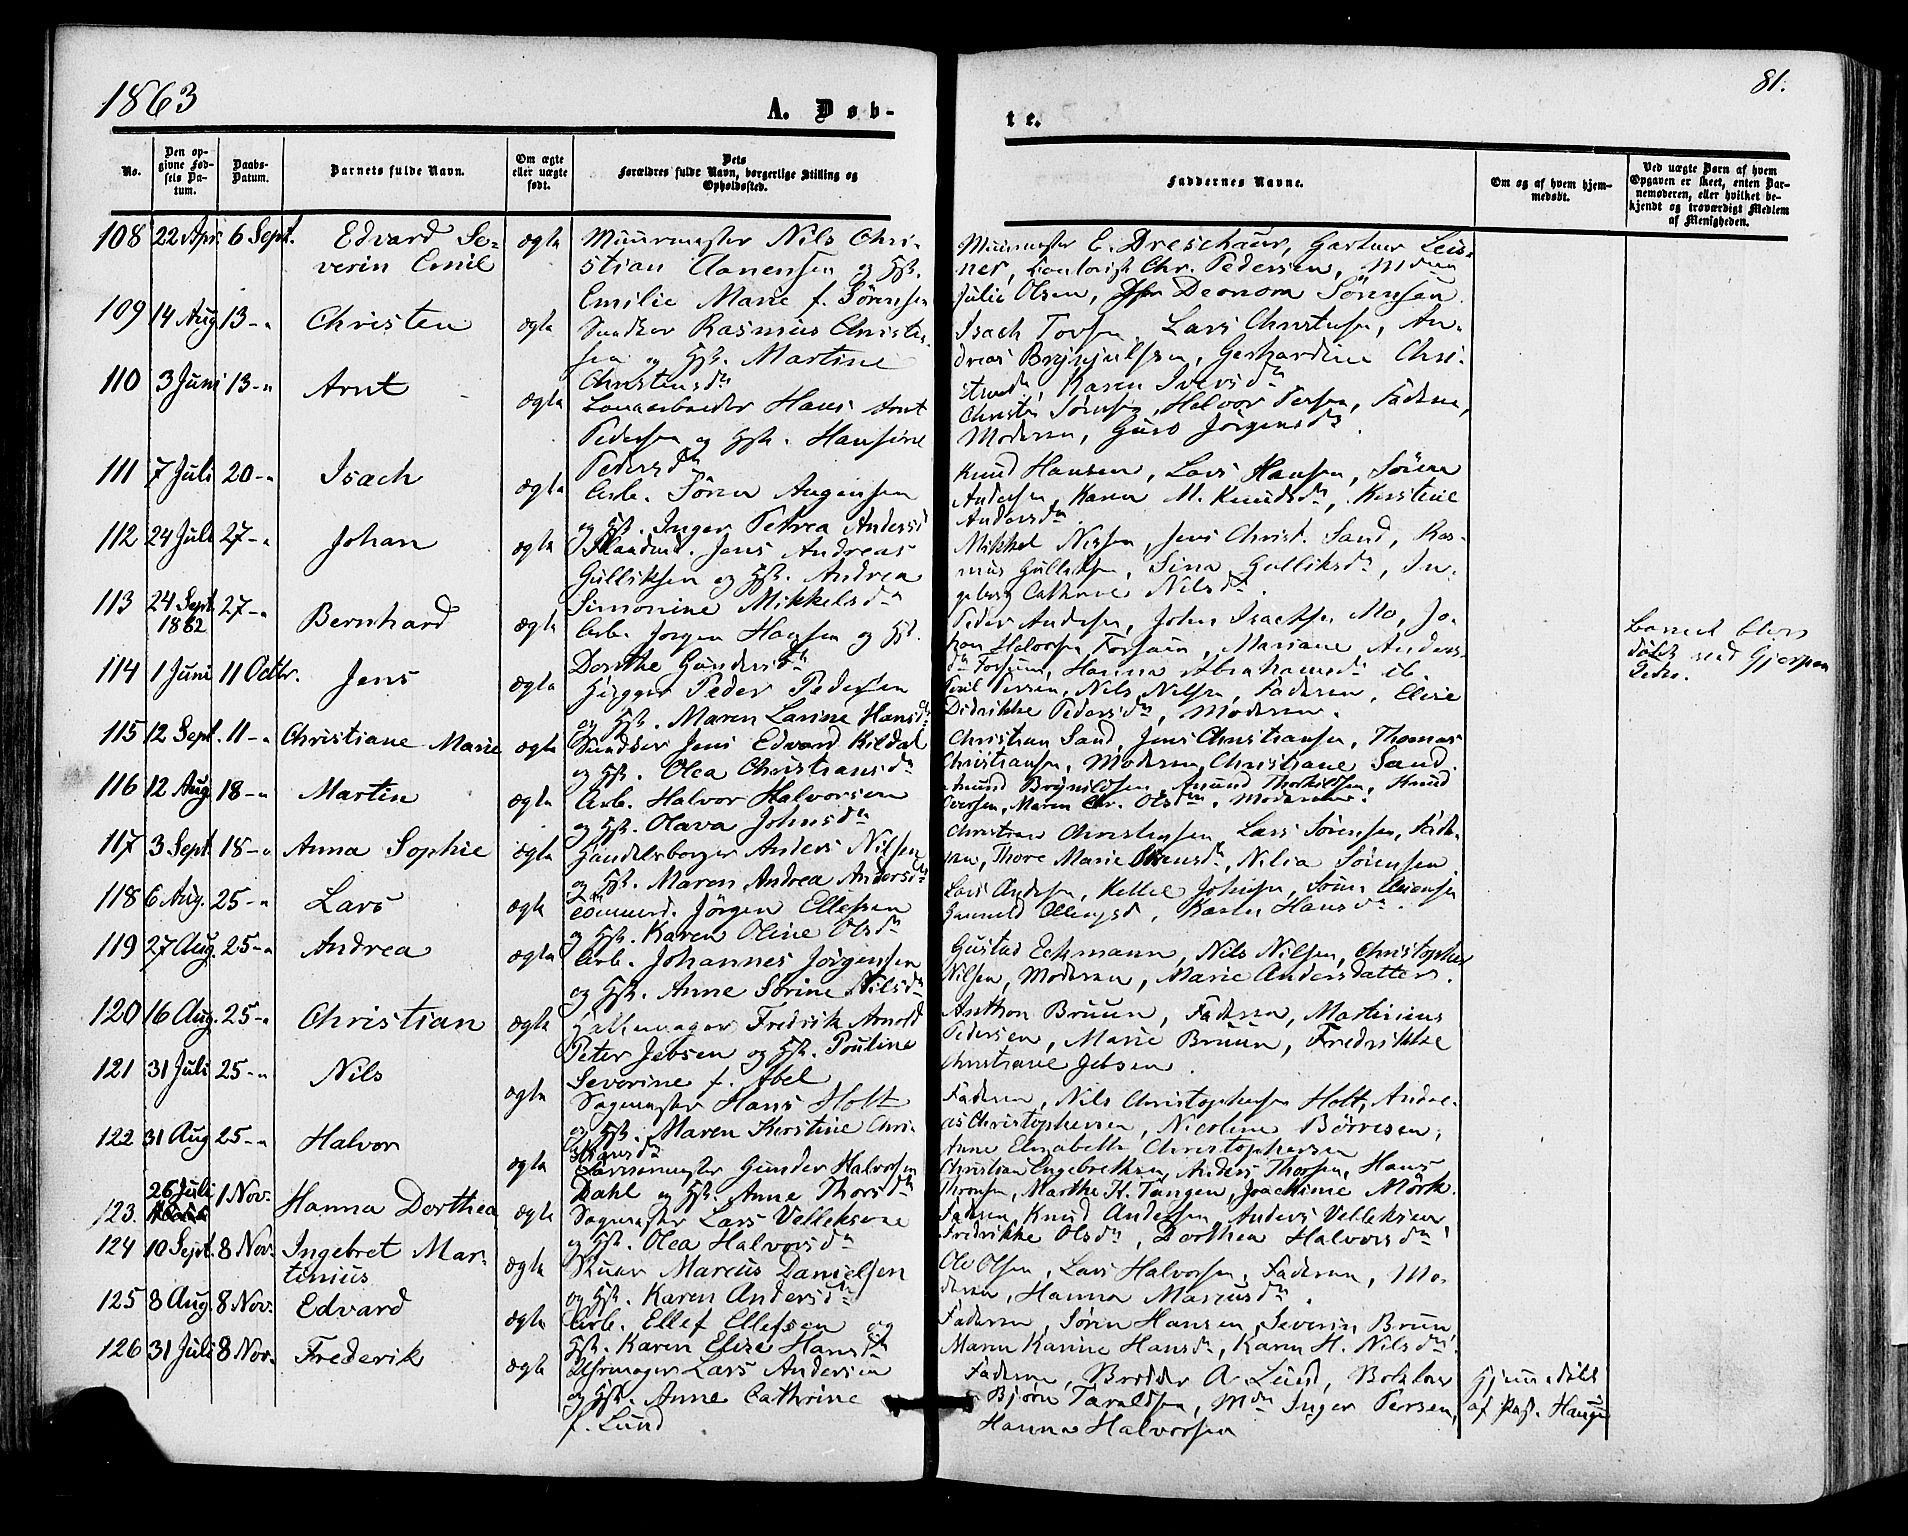 1863
81.
A. Døb-
te.
No.
Den op-
givne Fød-
sels Da-
tum.
Daabs-
Datum.
Barnets fulde Navn.
Om ægte
eller uægte
født.
Dets
Forældres fulde Navn, borgerlige Stilling og
Opholdssted.
Faddernes Navne.
Om og af hvem hjem-
medøbt.
Ved uægte Børn af hvem
Opgaven er skeet, enten Bar-
nemoderen, eller hvilket be-
kjendt og troværdigt Medlem
af Menigheden.
108 22 Apr. 6 Sept. Edvard Se-
verin Emil
ægte
Muurmester Nils Chri-
stian Aanensen og Hst.
Emilie Marie f. Sørensen
Muurmester E. Dreschauer, Gartner Leis-
ner, Chr. Pedersen, Mdm
Julie Olsen, Sørensen
109 14 Aug 13-" Christen
ægte
Rasmus Christen-
sen og Hst. Martine
Christensdtr
Isach Torsen, Lars Christensen, An-
dreas Brynjulfsen, Gerhardine Chri-
Karen Iversdtr
110 3 Juni 13-" Arnt
ægte
Hans Arnt
Pedersen og Hst. Hansine
Pedersdtr
Christen Sørensen, Halvor Persen, Faderen,
Moderen, Guro Jørgensdtr.
111 7 Juli 20-" Isach
ægte
Arb. Søren Augensen
og Hst. Inger Petrea Andersd
Knud Hansen, Lars Hansen, Søren
Andersen, Karen M. Knudsdtr, Kirstine
Andersdtr
112 24 Juli 27-" Johan
ægte
Jens Andreas
Gulliksen og Hst. Andrea
Simonine Mikkelsdtr
Mikkel Nilsen, Jens Christ. Sand, Ras-
mus Gulliksen, Sina Gulliksdtr, In-
geborg Cathrine Nilsdtr.
113 24 Sept. 1862 27-" Bernhard
ægte
Arb. Jørgen Hansen og Hst.
Dorthe Gundersdtr
Peder Andersen, John Isachsen Mo, Jo-
han Halvorsen Forsum, Mariane Anders-
dtr Forsum, Hanna Abrahamsdtr ib.
Barnet blev
døbt ved Gjerpen
Kirke.
114 1 Juni 11 Octbr. Jens
ægte
Peder Pedersen
og Hst. Maren Larine Hansdtr
Persen, Nils Nilsen, Faderen, Elise
Didrikke Pedersdtr, Moderen.
115 12 Sept. 11-" Christiane Marie
ægte
Jens Edvard Kildal
og Hst. Olea Christiansdtr
Christian Sand, Jens Christiansen, Thomas
Christiansen, Moderen, Christiane Sand.
116 12 Aug 18-" Martin
ægte
Arb. Halvor Halvorsen
og Hst. Olava Johnsdtr
Amund Brynildsen, Amund Thorkildsen, Knud
Eversen, Maren Chr. Olsdtr, Moderen.
117 3 Sept 18-" Anna Sophie
ægte
Handelsborger Anders Nilsen
og Hst. Maren Andrea Andersdtr
Christian Christensen, Lars Sørensen, Fade-
ren, Thore Marie Nilia Sørensen
118 6 Aug. 25-" Lars
ægte
Tømmerd. Jørgen Ellefsen
og Hst. Karen Oline Olsdtr
Lars Andersen, Kettel Johnsen, Søren
Gunnild Karen Hansdtr.
119 27 Aug. 25-" Andrea
ægte
Arb. Johannes Jørgensen
og Hst. Anne Sørine Nilsdtr
Gustav Eckmann, Nils Nilsen, Christopher
Nilsen, Moderen, Marie Andersdatter.
120 16 Aug. 25-" Christian
ægte
Fredrik Arnold
Peter Jebsen og Hst. Pouline
Severine f. Abel
Anthon Bruun, Faderen, Martinius
Pedersen, Marie Bruun, Fredrikke
Christiane Jebsen.
121 31 Juli 25-" Nils
ægte
Sagmester Hans Holt
og Hst. Maren Kirstine Chri-
stiansdtr
Faderen, Nils Christophersen Holt, Andre-
as Christophersen, Nicoline Børresen,
Anne Elisabeth Christophersen
122 31 Aug 25-" Halvor
ægte
Gunder Halvorsen
Dahl og Hst. Anne Thorsdtr
Christian Engebrethsen, Anders Thorsen, Hans
Thronsen, Marthe K. Tangen, Joachimie Mörk.
123. 26 Juli 1 Nov. Hanna Dorthea
ægte
Sagmester Lars Velleksene
og Hst. Olea Halvorsdtr
Faderen, Knud Andersen, Anders Velleksen
Fredrikke Olsdtr, Dorthea Halvorsdtr
124 10 Sept. 8 Nov. Ingebret Mar-
tinius
ægte
Skuer Marcus Danielsen
og Hst. Karen Andersdtr
Ole Olsen, Lars Halvorsen, Faderen, Mo-
deren, Hanna Marcusdtr.
125 8 Aug. 8 Nov. Edvard
ægte
Arb. Ellef Ellefsen og
Hst. Karen Elise Hansdt
Faderen, Søren Hansen, Severin Bruun
Maren Karine Hansdtr, Karen H. Nilsdtr.
126 31 Juli 8 Nov. Frederik
ægte
Uhrmager Lars Andersen
og Hst. Anne Cathrine
f. Lund
Faderen, Brødder A. Lund,
Bjørn Taraldsen, Mdm Inger Persen,
Hanna Halvorsen
Hjemmedøbt
af Past. Hauge